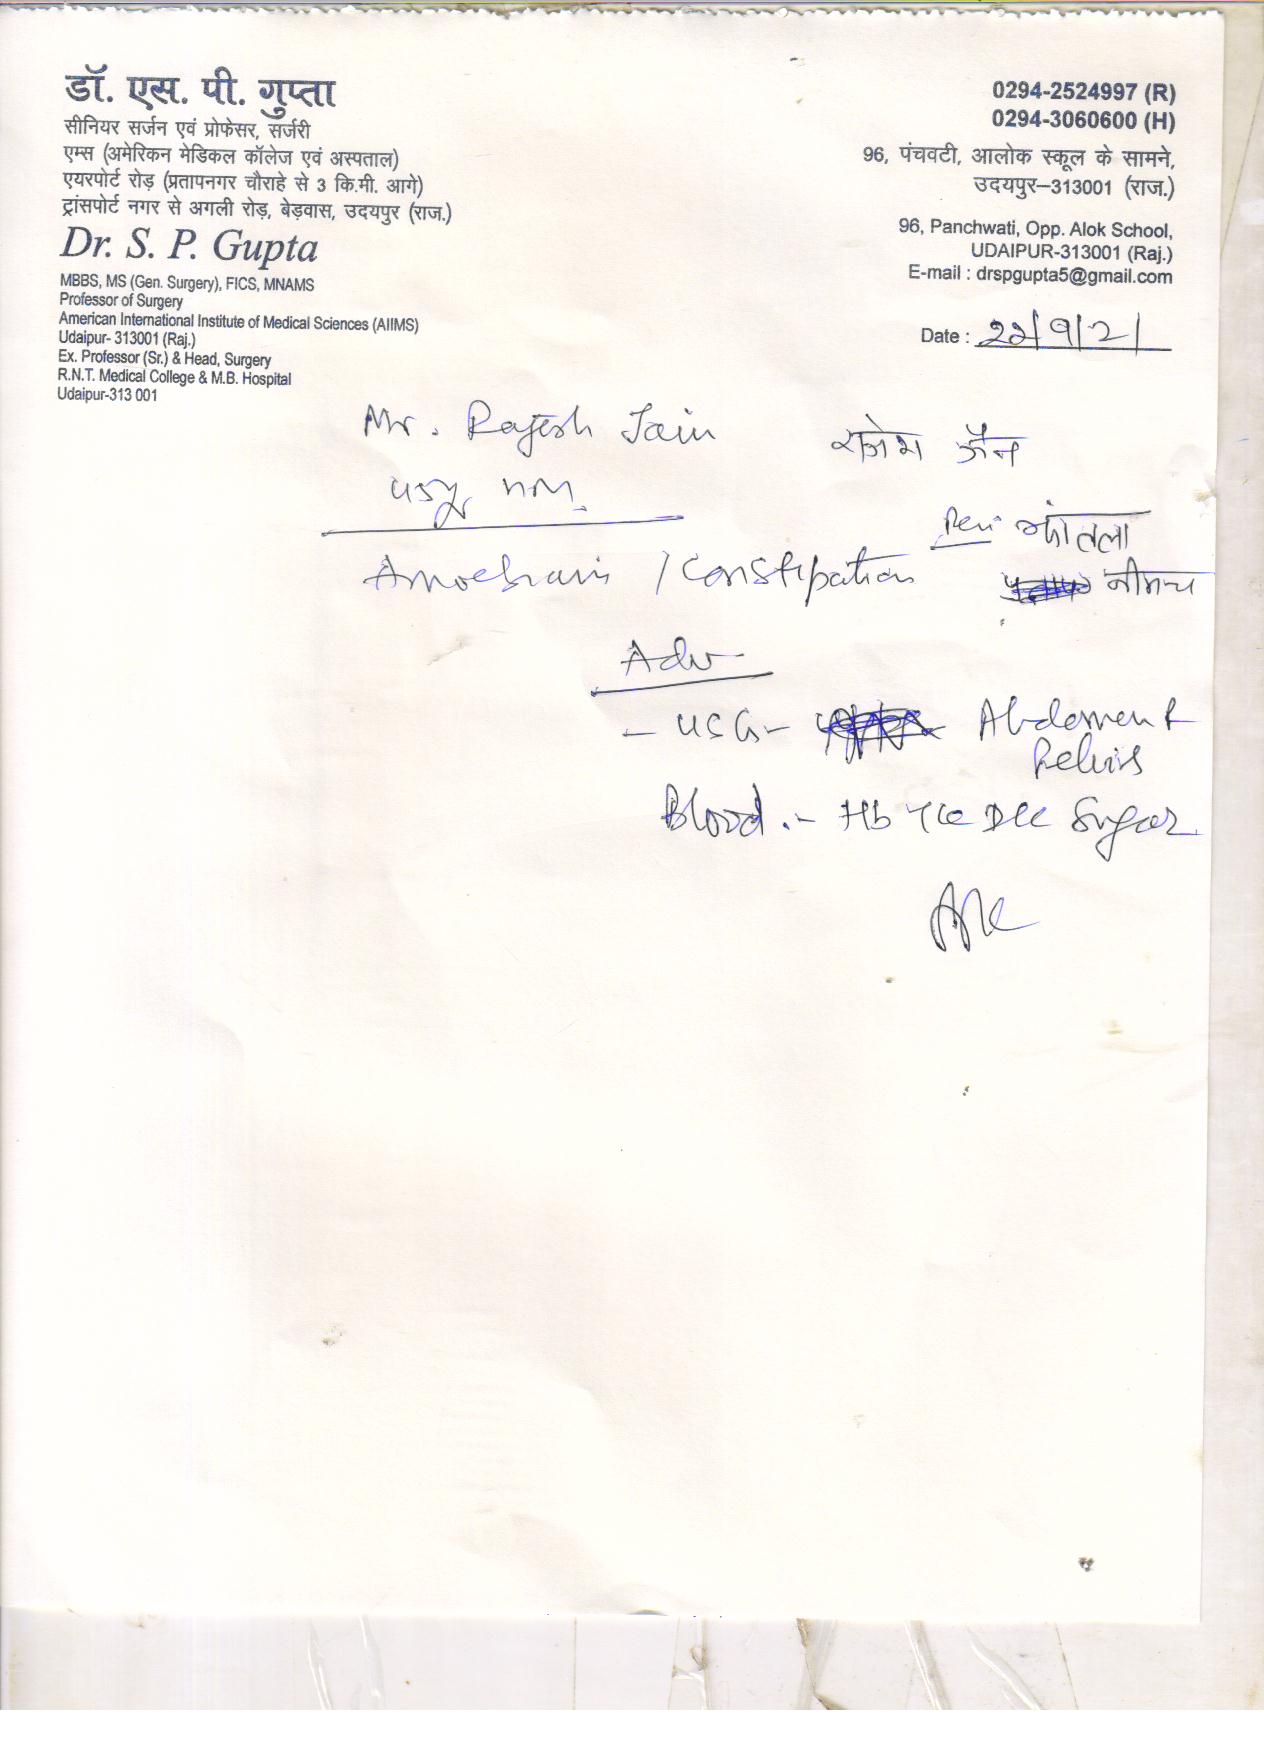 डॉ. एस. पी. गुप्ता
सीनियर सर्जन एवं प्रोफेसर, सर्जरी
एम्स (अमेरिकन मेडिकल कॉलेज एवं अस्पताल)
एयरपोर्ट रोड़ (प्रतापनगर चौराहे से 3 कि.मी. आगे)
ट्रांसपोर्ट नगर से अगली रोड़, बेड़वास, उदयपुर (राज.)
Dr. S. P. Gupta
MBBS, MS (Gen. Surgery), FICS, MNAMS
Professor of Surgery
American International Institute of Medical Sciences (AIIMS)
Udaipur- 313001 (Raj.)
Ex. Professor (Sr.) & Head, Surgery
R.N.T. Medical College & M.B. Hospital
Udaipur-313 001
0294-2524997 (R)
0294-3060600 (H)
96, पंचवटी, आलोक स्कूल के सामने,
उदयपुर–313001 (राज.)
96, Panchwati, Opp. Alok School,
UDAIPUR-313001 (Raj.)
E-mail : drspgupta5@gmail.com
Date : 22/9/21
Mr. Rajesh Jain राजेश जैन
Amoebiasis / Constipation
नीमच
Adv
- USG - Abdomen &
Pelvis
Blood :- Hb TLC DLC Sugar